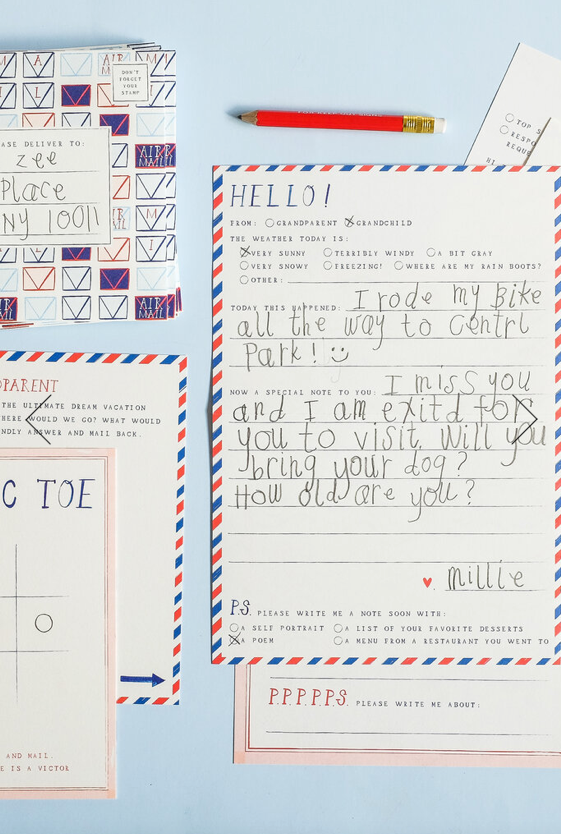 DON'T
FORGET
YOUR
STAMP
AIR
MAIL
AIR
MAIL
ASE DELIVER TO:
zee
Place
NY 10011
AIR
MAIL
TOP S
RESPO
REQU
HI
HELLO!
FROM: GRANDPARENT GRANDCHILD
THE WEATHER TODAY IS:
VERY SUNNY TERRIBLY WINDY A BIT GRAY
VERY SNOWY FREEZING! WHERE ARE MY RAIN BOOTS?
OTHER:
TODAY THIS HAPPENED: I rode my Bike
all the way to Centrl
Park!
NOW A SPECIAL NOTE TO YOU: I miss you
and I am exitd for
you to visit. Will you
bring your dog?
How old are you?
millie
P.S. PLEASE WRITE ME A NOTE SOON WITH:
A SELF PORTRAIT A LIST OF YOUR FAVORITE DESSERTS
A POEM A MENU FROM A RESTAURANT YOU WENT TO
P.P.P.P.P.S. PLEASE WRITE ME ABOUT:
DPARENT
THE ULTIMATE DREAM VACATION
HERE WOULD WE GO? WHAT WOULD
NDLY ANSWER AND MAIL BACK.
C TOE
AND MAIL.
E IS A VICTOR